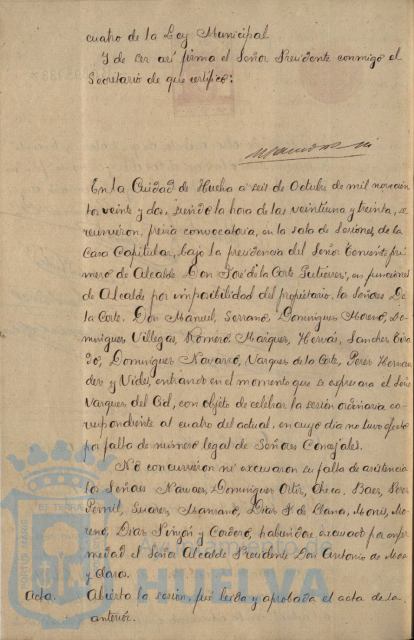 cuatro de la Ley Municipal
Y de ser así firma el Señor Presidente conmigo el
Secretario de que certifico:
En la Ciudad de Huelva a seis de Octubre de mil novecien
tos veinte y dos, siendo la hora de las veintiuna y treinta, se
reunieron, previa convocatoria, en la sala de Sesiones de la
Casa Capitular, bajo la presidencia del Señor Teniente pri
mero de Alcalde Don José de la Corte Gutierrez, en funciones
de Alcalde por imposibilidad del propietario, los Señores De
la Corte, Don Manuel, Serrano, Dominguez Moreno, Do-
minguez Villegas, Romero Marquez, Hervás, Sanchez
Dominguez Navarro, Vazquez de la Corte, Perez Hernan
dez y Vides, entrando en el momento que se expresara el Señor
Vazquez del Cid, con objeto de celebrar la sesión ordinaria co-
rrespondiente al cuatro del actual, en cuyo dia no tuvo efecto
por falta de número legal de Señores Concejales.
No concurrieron ni excusaron su falta de asistencia
los Señores Navaes, Dominguez Ortiz, Checa, Baez, Perez
Suarez, Mariano, Diaz P. de Llana, Monis, Mo-
reno, Diaz Pinzón y Cordero, habiendose excusado por enfer
medad el Señor Alcalde Presidente Don Antonio de Mora
y Claros.
Acta. Abierta la sesión, fué leida y aprobada el acta de la
anterior.
HUELVA
PORTUS MARIS
ET TERRAE